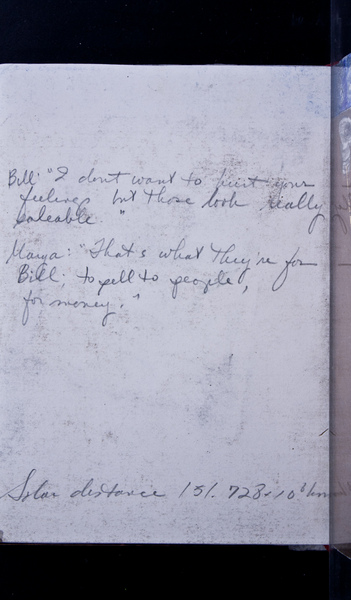 Bill: "I don't want to hurt your
feelings but those look really
saleable."
Marya: "That's what they're for
Bill; to sell to people,
for money."
Solar distance 151.728 × 10⁶ km